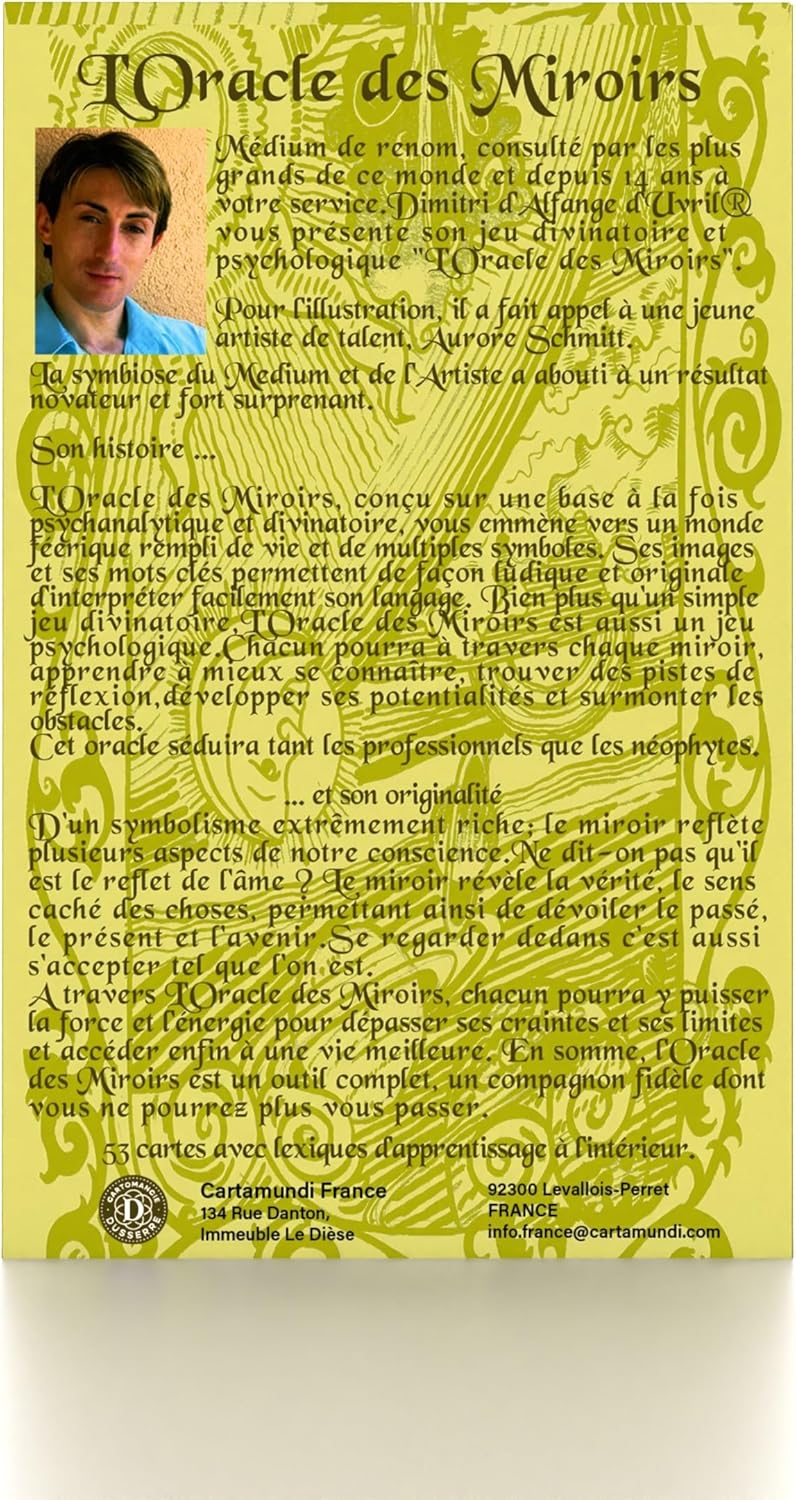 L'Oracle des Miroirs
Médium de renom, consulté par les plus
grands de ce monde et depuis 14 ans à
votre service.Dimitri d'Alfange d'Uvril®
vous présente son jeu divinatoire et
psychologique "L'Oracle des Miroirs".
Pour l'illustration, il a fait appel à une jeune
artiste de talent, Aurore Schmitt.
La symbiose du Medium et de l'Artiste a abouti à un résultat
novateur et fort surprenant.
Son histoire ...
L'Oracle des Miroirs, conçu sur une base à la fois
psychanalytique et divinatoire, vous emmène vers un monde
féerique rempli de vie et de multiples symboles. Ses images
et ses mots clés permettent de façon ludique et originale
d'interpréter facilement son langage. Bien plus qu'un simple
jeu divinatoire,L'Oracle des Miroirs est aussi un jeu
psychologique.Chacun pourra à travers chaque miroir,
apprendre à mieux se connaître, trouver des pistes de
réflexion,développer ses potentialités et surmonter les
obstacles.
Cet oracle séduira tant les professionnels que les néophytes.
... et son originalité
D'un symbolisme extrêmement riche; le miroir reflète
plusieurs aspects de notre conscience.Ne dit-on pas qu'il
est le reflet de l'âme ? Le miroir révèle la vérité, le sens
caché des choses, permettant ainsi de dévoiler le passé,
le présent et l'avenir.Se regarder dedans c'est aussi
s'accepter tel que l'on est.
A travers L'Oracle des Miroirs, chacun pourra y puiser
la force et l'énergie pour dépasser ses craintes et ses limites
et accéder enfin à une vie meilleure. En somme, l'Oracle
des Miroirs est un outil complet, un compagnon fidèle dont
vous ne pourrez plus vous passer.
53 cartes avec lexiques d'apprentissage à l'intérieur.
CARTOMANCIE
D
DUSSERRE
Cartamundi France
134 Rue Danton,
Immeuble Le Dièse
92300 Levallois-Perret
FRANCE
info.france@cartamundi.com